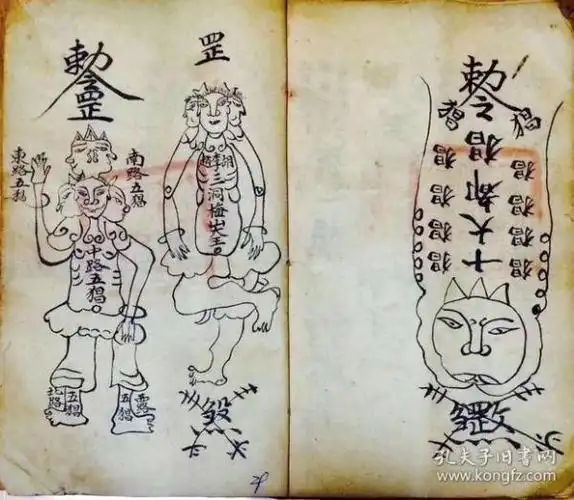 勅令罡
東路五猖
南路五猖
中路五猖
北路五猖
西路五猖
罡
三洞梅山大王
勅令
猖都大十
猖猖猖猖猖
猖猖猖猖猖
29
孔夫子旧书网
www.kongfz.com